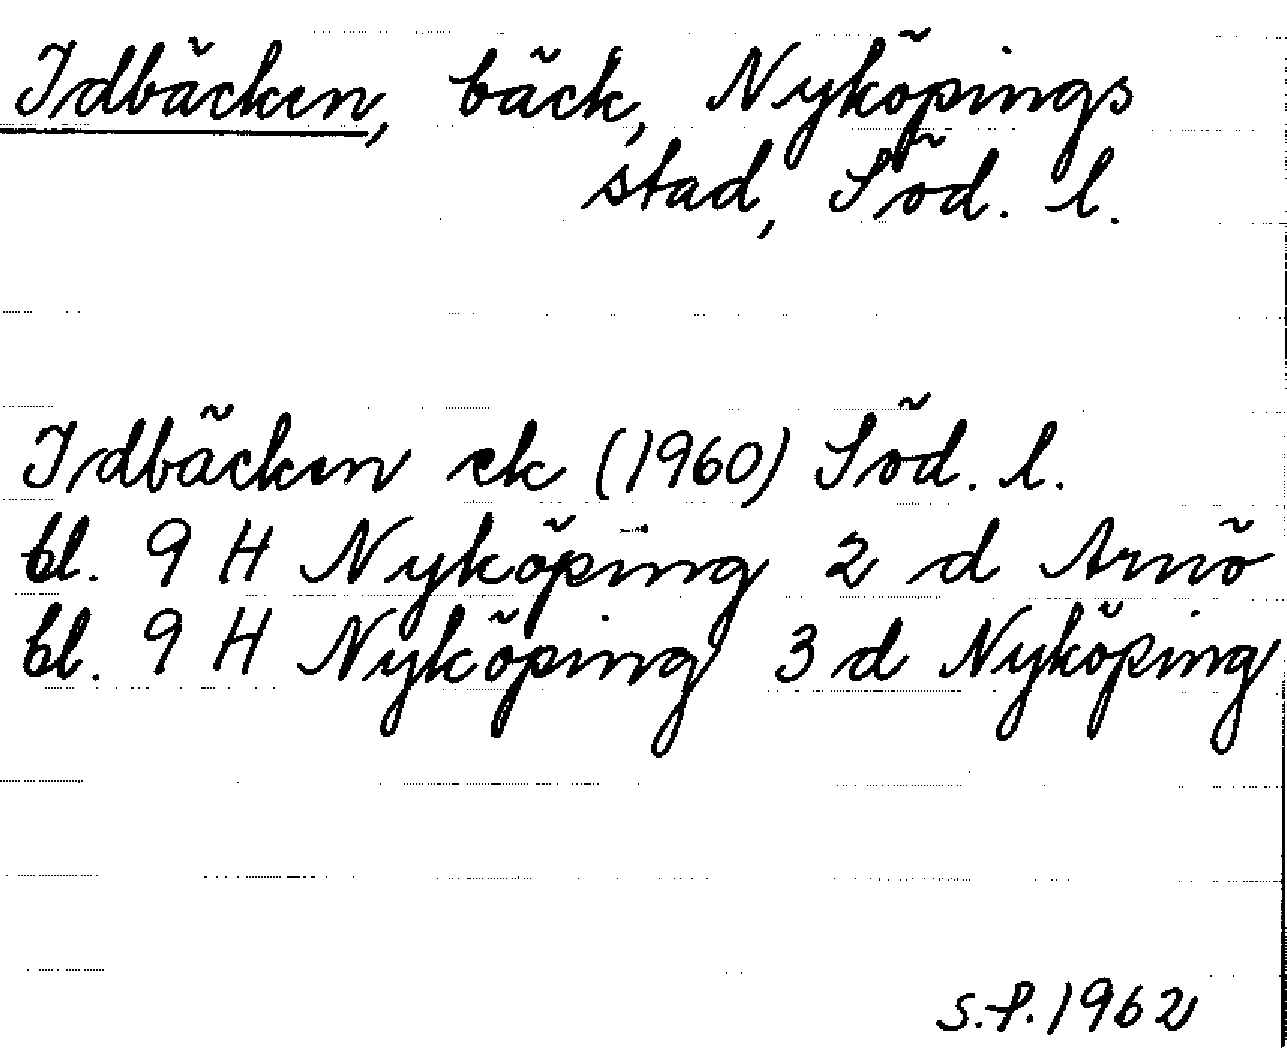 Idbäcken, bäck, Nyköpings
stad, Söd. l.
Idbäcken ek (1960) Söd. l.
bl. 9 H Nyköping 2 d Arnö
bl. 9 H Nyköping 3 d Nyköping
S.P. 1962